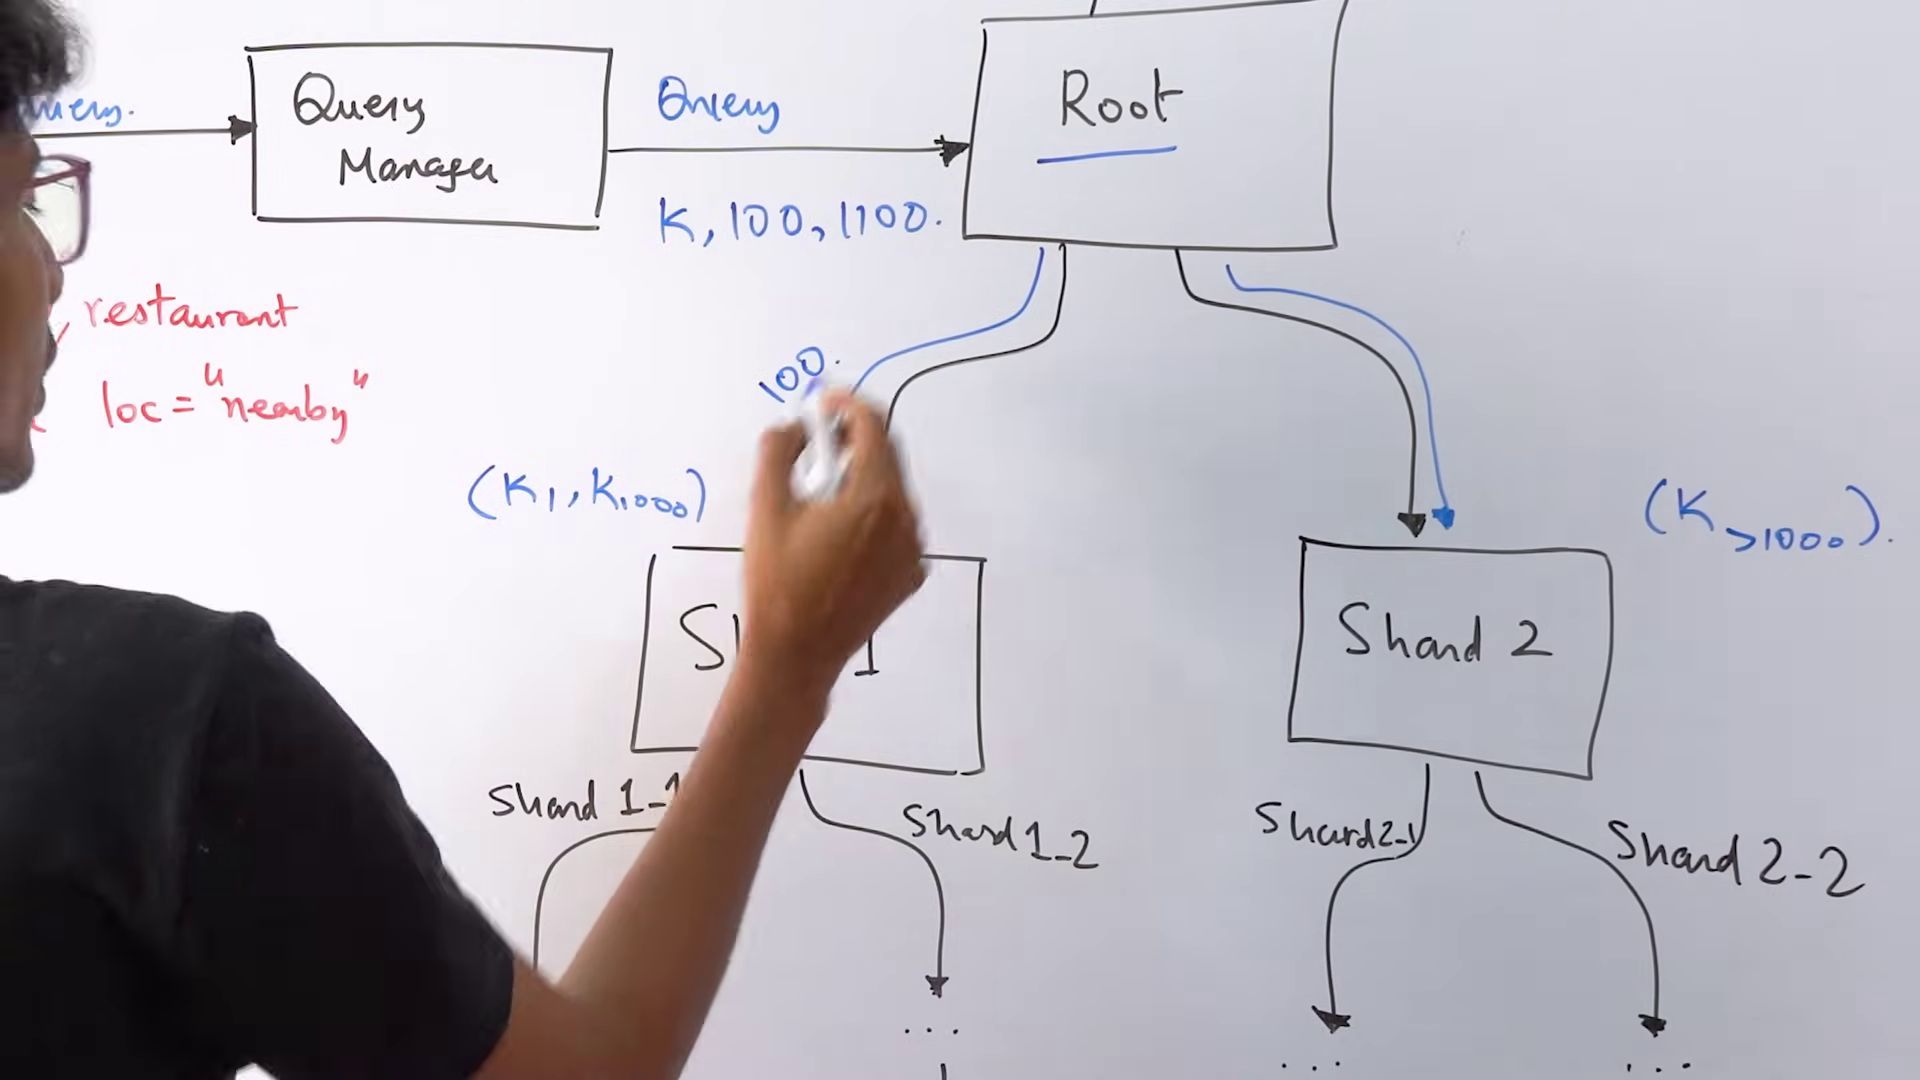 Query
Manager
Query
K, 100, 1100.
Root
restaurant
loc = "nearby"
100.
(K1, K1000)
(K>1000).
Shard 2
Shard 1-1
Shard 1-2
Shard 2-1
Shard 2-2
...
...
...